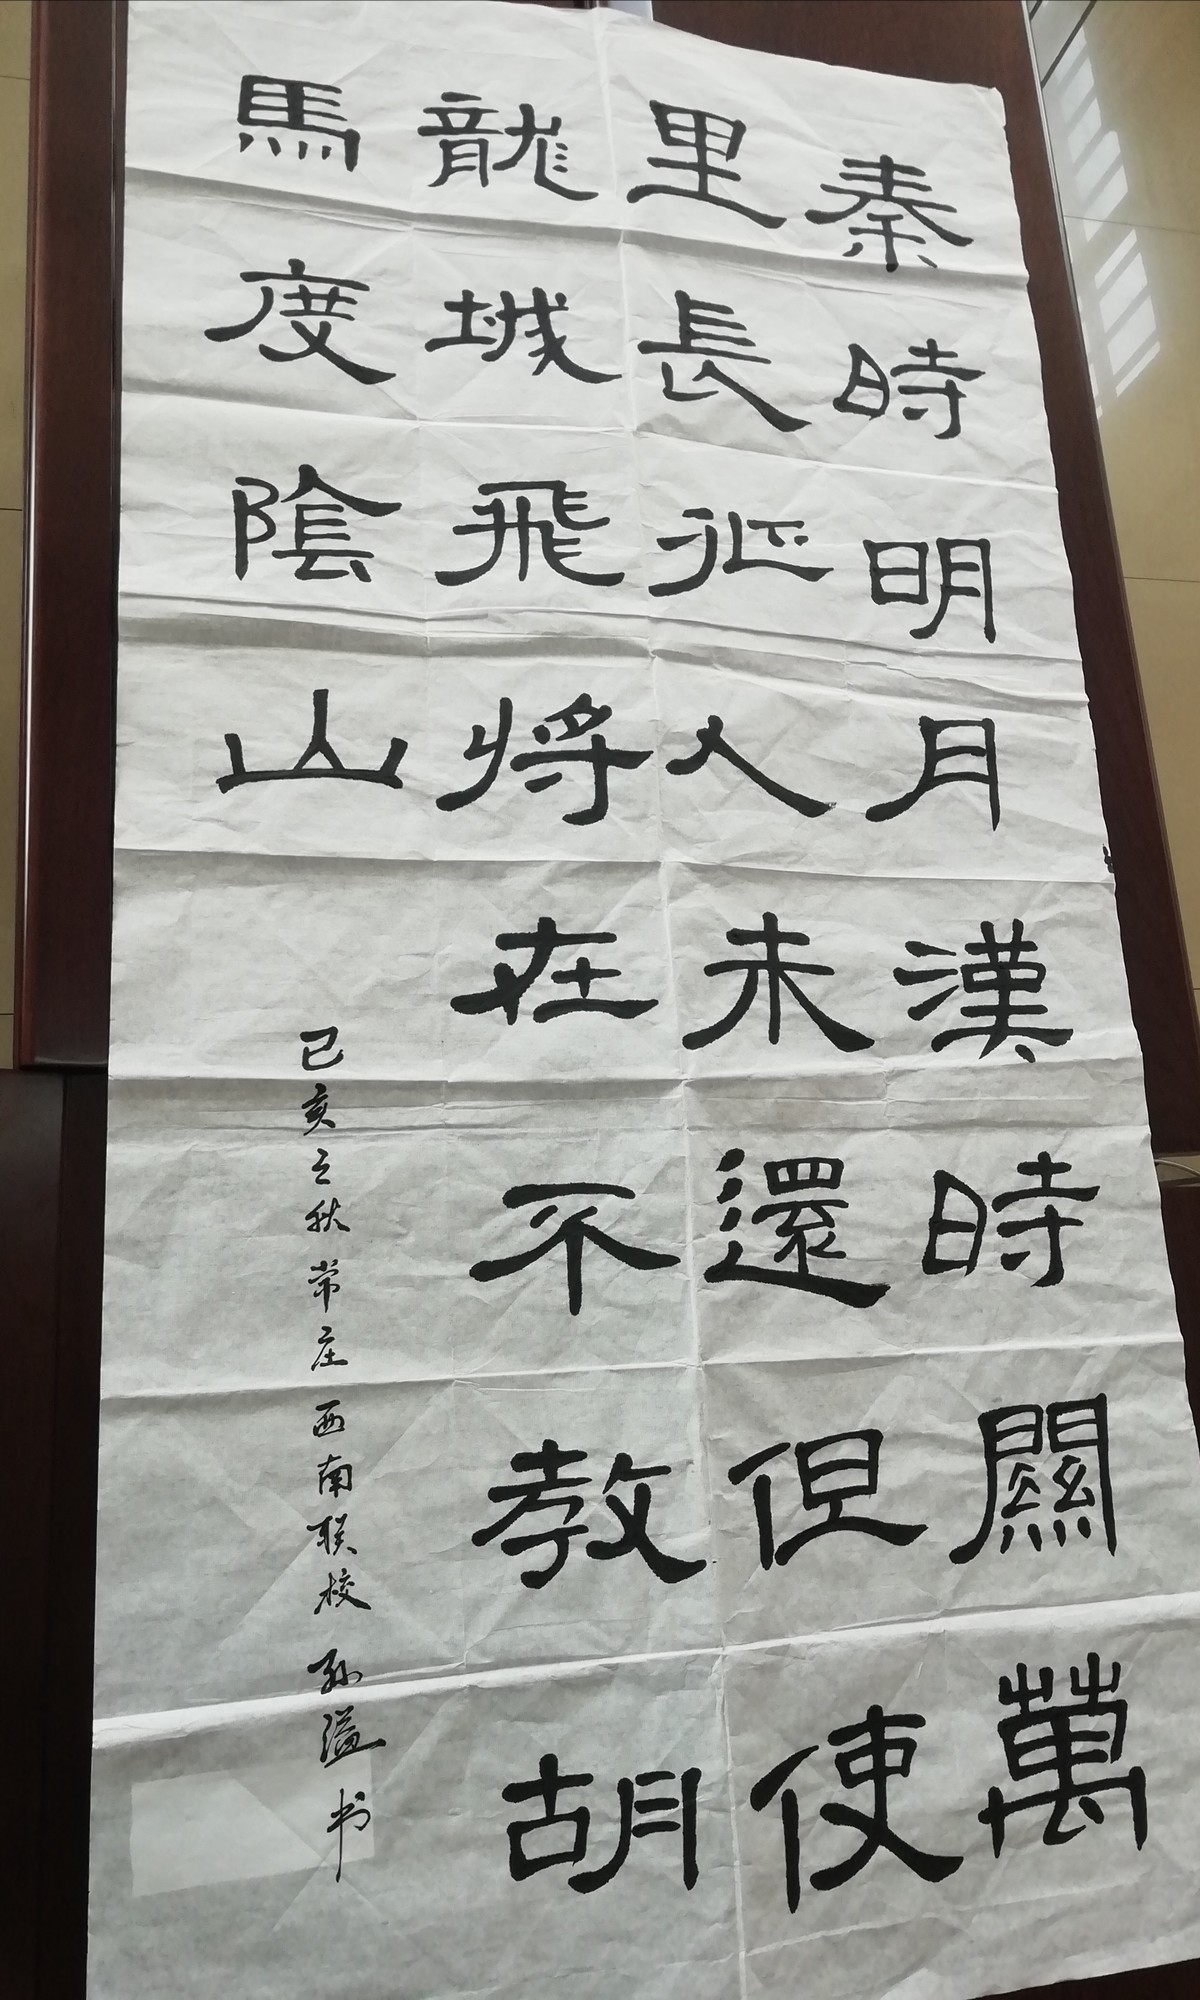 秦時明月漢時關萬
里長征人未還但使
龍城飛將在不教胡
馬度陰山
己亥之秋常庄西南联校孙溢书